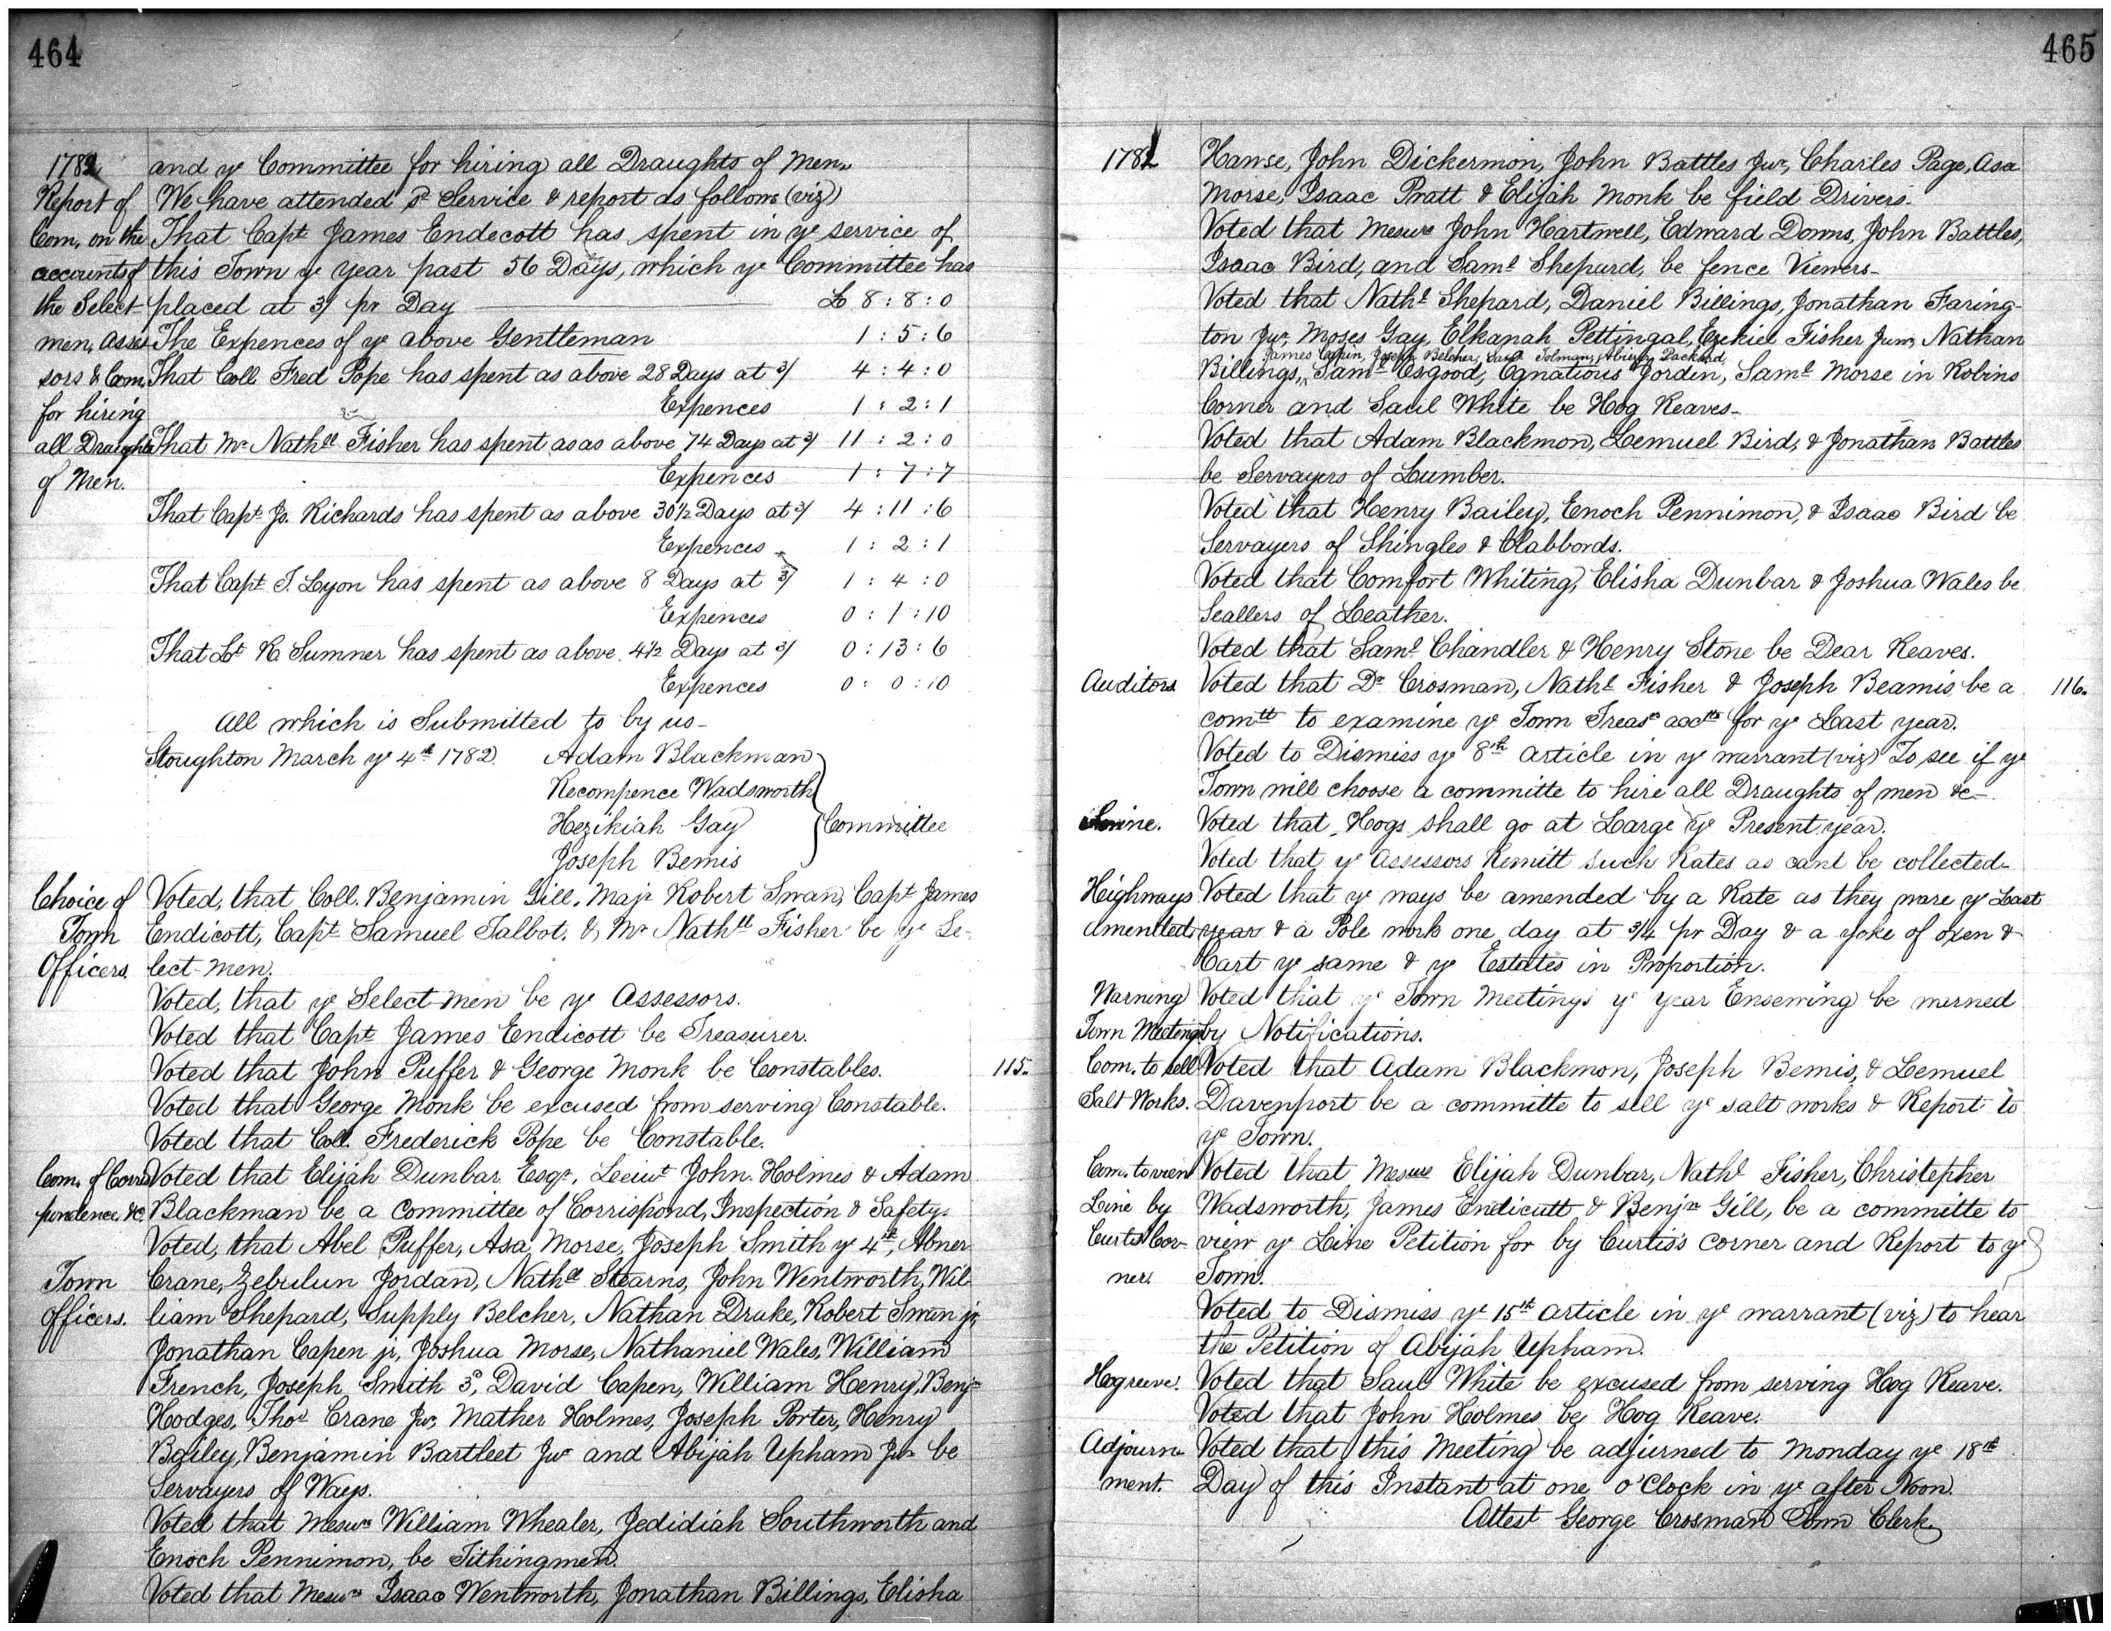 464
1782 and ye Committee for hiring all Draughts of Men.
Report of We have attended sd Service & report as follows (viz)
Com. on the That Capt James Endecott has spent in ye service of
accounts of this Town ye year past 56 Days, which ye Committee has
the Select- placed at 3/ pr Day £ 8 : 8 : 0
men, Asses- The Expences of ye above Gentleman 1 : 5 : 6
sors & Com. That Coll Fred Pope has spent as above 28 Days at 3/ 4 : 4 : 0
for hiring Expences 1 : 2 : 1
all Draughts That Mr Nathll Fisher has spent as as above 74 Days at 3/ 11 : 2 : 0
of Men. Expences 1 : 7 : 7
That Capt Js. Richards has spent as above 30½ Days at 3/ 4 : 11 : 6
Expences 1 : 2 : 1
That Capt T. Lyon has spent as above 8 Days at 3/ 1 : 4 : 0
Expences 0 : 1 : 10
That Lt R. Sumner has spent as above 4½ Days at 3/ 0 : 13 : 6
Expences 0 : 0 : 10
All which is Submitted to by us-
Stoughton March ye 4th 1782. Adam Blackman
Recompence Wadsworth
Hezikiah Gay Committee
Joseph Bemis
Choice of Voted, that Coll. Benjamin Gill, Majr Robert Swan, Capt James
Town Endicott, Capt Samuel Talbot, & Mr Nathll Fisher be ye Se-
Officers lect-men.
Voted, that ye Select men be ye Assessors.
Voted that Capt James Endicott be Treasurer.
Voted that John Puffer & George Monk be Constables. 115.
Voted that George Monk be excused from serving Constable.
Voted that Coll. Frederick Pope be Constable.
Com. of Corres- Voted that Elijah Dunbar Esqr, Leeiut John Holmes & Adam
pondence, &c. Blackman be a Committee of Corrispond, Inspection & Safety.
Voted, that Abel Puffer, Asa Morse, Joseph Smith ye 4th, Abner
Town Crane, Zebulun Jordan, Nathll Stearns, John Wentworth, Wil-
Officers. liam Shepard, Supply Belcher, Nathan Drake, Robert Swan jr,
Jonathan Capen jr, Joshua Morse, Nathaniel Wales, William
French, Joseph Smith 3d, David Capen, William Henry, Benjn
Hodges, Thos Crane Jur, Mather Holmes, Joseph Porter, Henry
Bailey, Benjamin Bartleet Jur and Abijah Upham Jur be
Servayers of Ways.
Voted that Messrs William Whealer, Jedidiah Southworth and
Enoch Pennimon, be Tithingmen.
Voted that Messrs Isaac Wentworth, Jonathan Billings, Elisha
465
1782 Hawse, John Dickermon, John Battles Jur, Charles Page, Asa
Morse, Isaac Pratt & Elijah Monk be field Drivers.
Voted that Messrs John Hartwell, Edward Downs, John Battles,
Isaac Bird, and Saml Shepurd, be fence Viewers-
Voted that Nathl Shepard, Daniel Billings, Jonathan Faring-
ton Jur, Moses Gay, Elkanah Pettingal, Ezekiel Fisher Junr, Nathan
James Capin, Joseph Belcher, Saml Tolman, Abiezer Packard
Billings, Saml Osgood, Egnatious Jordin, Saml Morse in Robins
Corner and Saul White be Hog Reaves-
Voted that Adam Blackmon, Lemuel Bird, & Jonathan Battles
be Servayers of Lumber.
Voted that Henry Bailey, Enoch Pennimon, & Isaac Bird be
Servayers of Shingles & Clabbords.
Voted that Comfort Whiting, Elisha Dunbar & Joshua Wales be
Seallers of Leather.
Voted that Saml Chandler & Henry Stone be Dear Reaves.
Auditors Voted that Dr Crosman, Nathl Fisher & Joseph Beamis be a 116.
comtt to examine ye Town Treasr accts for ye Last year.
Voted to Dismiss ye 8th article in ye warrant (viz) To see if ye
Town will choose a committe to hire all Draughts of men &c-
Swine. Voted that Hogs shall go at Large ye Present year.
Voted that ye Assessors Remitt such Rates as cant be collected-
Highways Voted that ye ways be amended by a Rate as they ware ye Last
amended. year & a Pole work one day at 3/4 pr Day & a yoke of oxen &
Cart ye same & ye Estates in Proportion.
Warning Voted that ye Town Meetings ye year Ensewing be werned
Town Meetings by Notifications.
Com. to sell Voted that Adam Blackmon, Joseph Bemis, & Lemuel
Salt Works. Davenport be a committe to sell ye salt works & Report to
ye Town.
Com. to view Voted that Messrs Elijah Dunbar, Nathl Fisher, Christepher
Line by Wadsworth, James Endicutt & Benjn Gill, be a committe to
Curtis Cor- view ye Line Petition for by Curtis's corner and Report to ye
ner. Town.
Voted to Dismiss ye 15th article in ye warrant (viz) to hear
the Petition of Abijah Upham.
Hogreeve. Voted that Saul White be excused from serving Hog Reave.
Voted that John Holmes be Hog Reave.
Adjourn- Voted that this Meeting be adjurned to Monday ye 18th
ment. Day of this Instant at one o'Clock in ye after Noon.
Attest George Crosman Town Clerk.